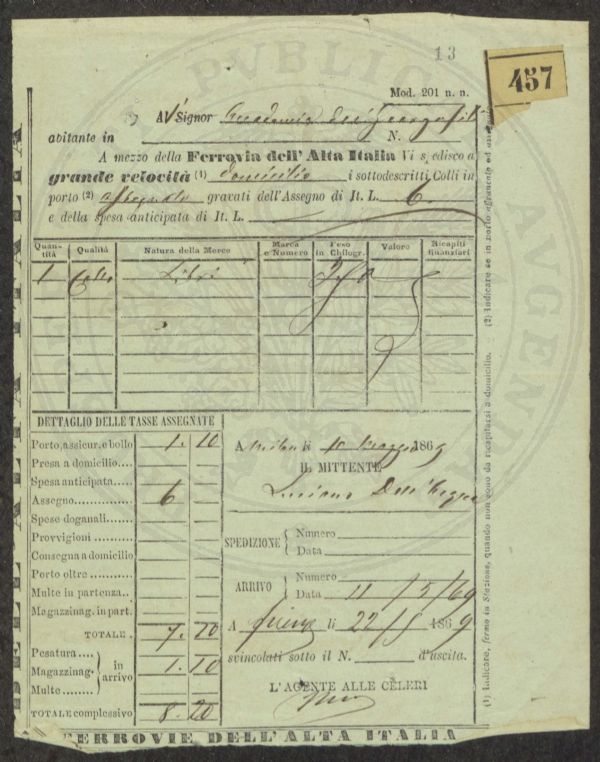 PVBLICI
AVGENT
13
457
Mod. 201 n. n.
Al Signor Accademia dei Georgofili
abitante in N.
A mezzo della Ferrovia dell'Alta Italia Vi spedisco a
grande velocità (1) domicilio i sottodescritti Colli in
porto (2) assegnato gravati dell'Assegno di It. L. 6
e della spesa anticipata di It. L.
Quantità Qualità Natura della Merce Marca e Numero Peso in Chilogr. Valore Ricapiti finanziari
1 Collo Libri
DETTAGLIO DELLE TASSE ASSEGNATE
Porto, assicur. e bollo 1. 10
Presa a domicilio....
Spesa anticipata.....
Assegno.......... 6
Spese doganali...
Provvigioni
Consegna a domicilio
Porto oltre..........
Multe in partenza..
Magazzinag. in part.
TOTALE. 7. 10
Pesatura.....
Magazzinag. in arrivo 1. 10
Multe........
TOTALE complessivo 8. 20
A Milano li 10 Maggio 1869
IL MITTENTE
Luciano
SPEDIZIONE Numero
Data
ARRIVO Numero
Data 11 / 5/69
A Firenze li 22/5 1869
svincolati sotto il N. d'uscita.
L'AGENTE ALLE CELERI
FERROVIE DELL'ALTA ITALIA
DELL'ALTA ITALIA
(1) Indicare, fermo in Stazione, quando non sono da ricapitarsi a domicilio. (2) Indicare se in porto affrancato od assegnato